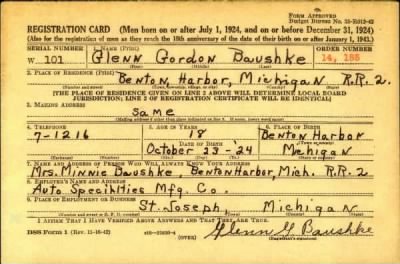 FORM APPROVED
REGISTRATION CARD (Men born on or after July 1, 1924, and on or before December 31, 1924)
(Also for the registration of men as they reach the 18th anniversary of the date of their birth on or after January 1, 1943.)
SERIAL NUMBER 1. NAME (Print) ORDER NUMBER
W 101 Glenn Gordon Baushke 14,155
(First) (Middle) (Last)
2. PLACE OF RESIDENCE (Print)
Benton Harbor, Michigan R.R. 2.
(Number and street) (Town, township, village, or city) (County) (State)
[THE PLACE OF RESIDENCE GIVEN ON LINE 2 ABOVE WILL DETERMINE LOCAL BOARD
JURISDICTION; LINE 2 OF REGISTRATION CERTIFICATE WILL BE IDENTICAL]
3. MAILING ADDRESS
Same
4. TELEPHONE 5. AGE IN YEARS 6. PLACE OF BIRTH
7-1216 18 Benton Harbor
DATE OF BIRTH (Town or county)
October 23 - '24 Michigan
(Exchange) (Number) (Mo.) (Day) (Yr.) (State or country)
7. NAME AND ADDRESS OF PERSON WHO WILL ALWAYS KNOW YOUR ADDRESS
Mrs. Minnie Baushke, Benton Harbor, Mich. R.R. 2
8. EMPLOYER'S NAME AND ADDRESS
Auto Specialties Mfg. Co.
9. PLACE OF EMPLOYMENT OR BUSINESS
St. Joseph, Michigan
(Number and street or R. F. D. number) (Town) (County) (State)
I AFFIRM THAT I HAVE VERIFIED ABOVE ANSWERS AND THAT THEY ARE TRUE.
DSS Form 1 (Rev. 11-16-42) Glenn G Baushke
(Registrant's signature)